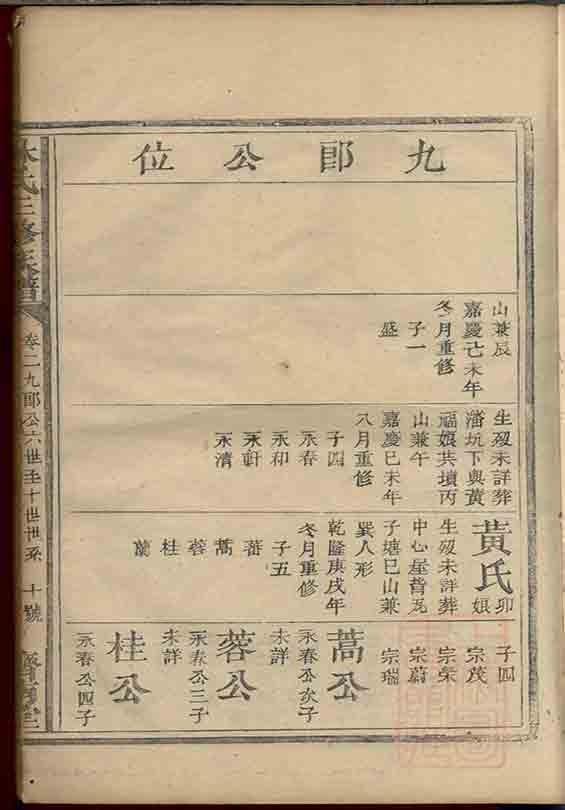 九郎公位
山兼辰
嘉慶己未年
冬月重修
子一
盛
生歿未詳葬
潘坑下與黄
福娘共墳丙
山兼午
嘉慶己未年
八月重修
子四
永春
永和
永軒
永清
黃氏卯娘
生歿未詳葬
中心屋背瓦
子塘巳山兼
巽人形
乾隆庚戌年
冬月重修
子五
蕃
蒿
蓉
桂
蘭
子四
宗茂
宗榮
宗蔚
宗瑞
蒿公
永春公次子
未詳
蓉公
永春公三子
未詳
桂公
永春公四子
林氏三修族譜
卷二九郎公六世至十世世系
十號